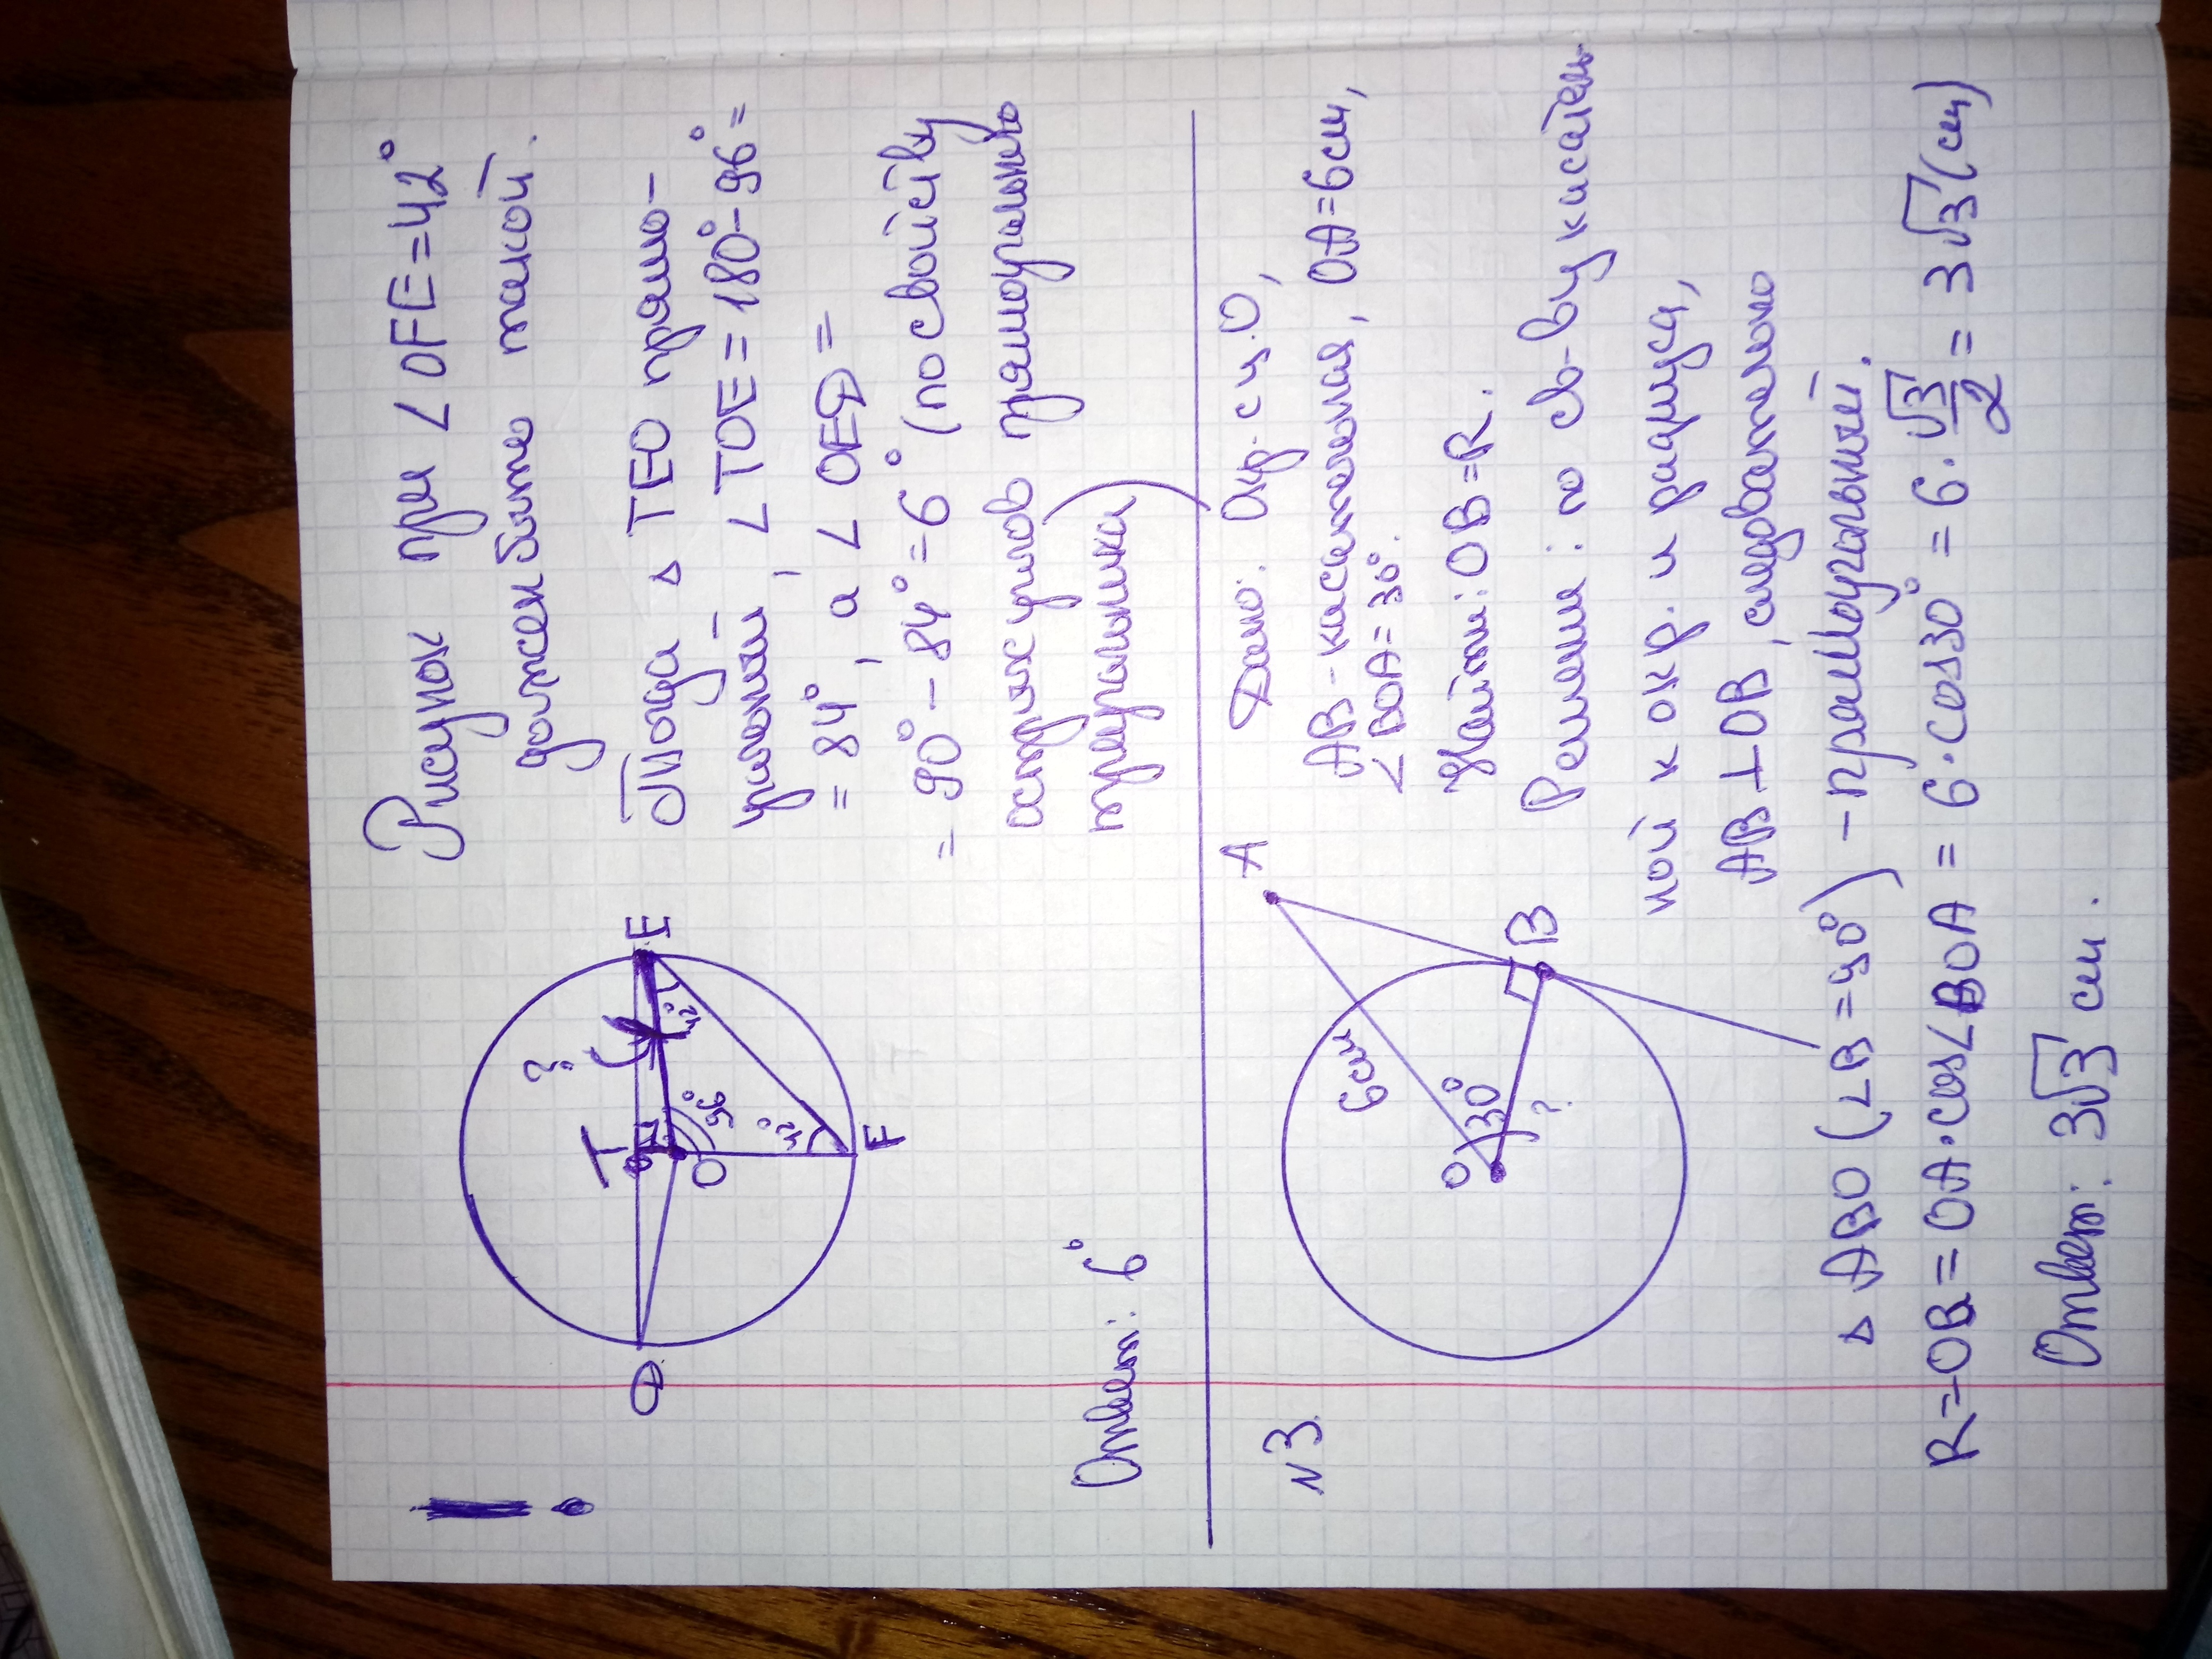 Рисунок при ∠OFE=42°
должен быть таким.
!
Тогда △ TEO прямо-
угольный, ∠ TOE = 180°-96°=
= 84°, а ∠ OED =
= 90° - 84° = 6° (по свойству
острых углов прямоугольного
треугольника)
D
T
E
?
O
96°
42°
42°
F
Ответ: 6°
N3
Дано: Окр. с ц. O,
AB - касательная, OA=6см,
∠BOA = 30°.
Найти: OB=R.
Решение: по св-ву касатель-
ной к окр. и радиуса,
AB ⊥ OB, следовательно
△ ABO (∠B = 90°) - прямоугольный.
R=OB = OA·cos∠BOA = 6·cos30° = 6·√3/2 = 3√3 (см)
Ответ: 3√3 см.
A
6см
O
30°
?
B